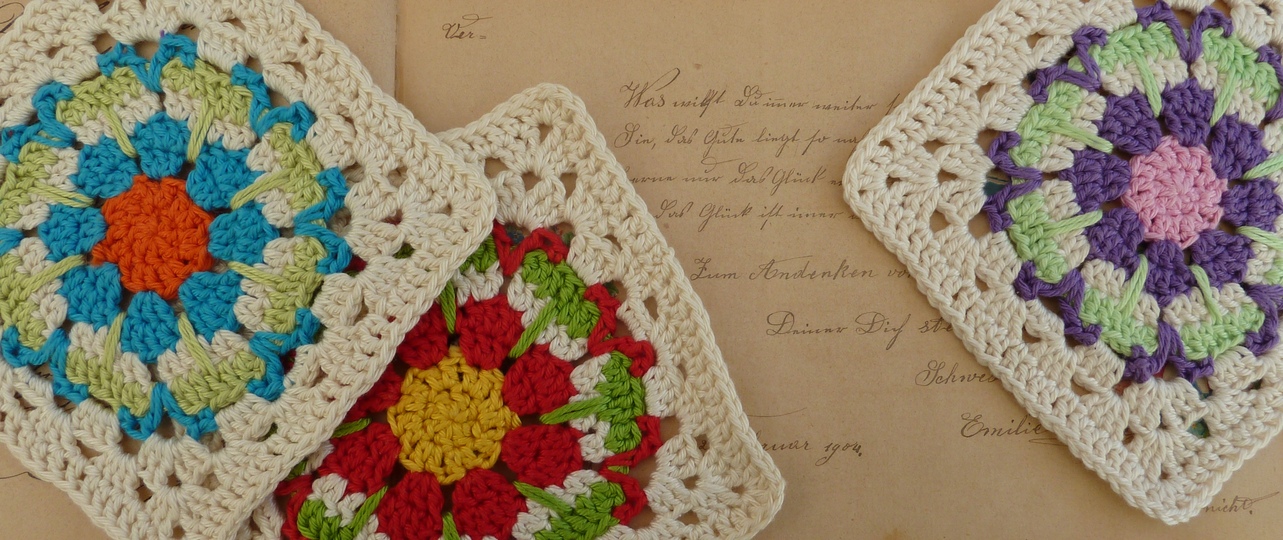 Ver=
Was willst Du immer weiter
Sie, das Gute liegt so
erne nur das Glück
das Glück ist immer
Zum Andenken
Deiner Dich
Schwe
Emilie
uar 1904.
nicht.